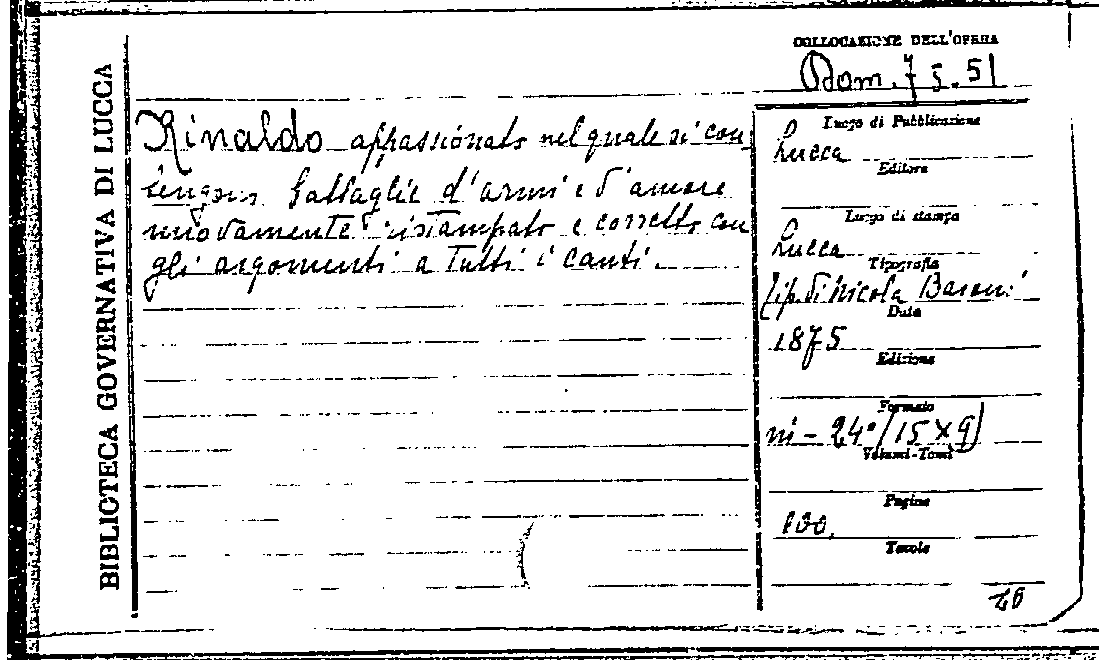 BIBLIOTECA GOVERNATIVA DI LUCCA
COLLOCAZIONE DELL'OPERA
Dom. 7 5. 51
Rinaldo appassionato nel quale si con
tengon battaglie d'armi e d'amore
nuovamente ristampato e corretto con
gli argomenti a tutti i canti.
Luogo di Pubblicazione
Lucca
Editore
Luogo di stampa
Lucca
Tipografia
Tip. di Nicola Baroni
Data
1875
Edizione
Formato
in - 24° (15 X 9)
Volumi-Tomi
Pagine
100.
Tavole